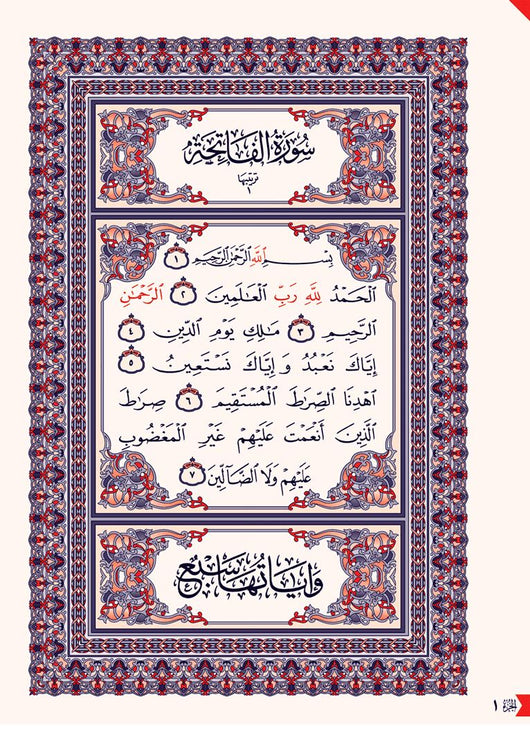 سُورَةُ الفَاتِحَة
ترتيبها
١
بِسْمِ اللَّهِ الرَّحْمَنِ الرَّحِيمِ ١
الْحَمْدُ لِلَّهِ رَبِّ الْعَالَمِينَ ٢ الرَّحْمَانِ
الرَّحِيمِ ٣ مَالِكِ يَوْمِ الدِّينِ ٤
إِيَّاكَ نَعْبُدُ وَإِيَّاكَ نَسْتَعِينُ ٥
اهْدِنَا الصِّرَاطَ الْمُسْتَقِيمَ ٦ صِرَاطَ
الَّذِينَ أَنْعَمْتَ عَلَيْهِمْ غَيْرِ الْمَغْضُوبِ
عَلَيْهِمْ وَلَا الضَّآلِّينَ ٧
وآياتها سبع
الجزء ١